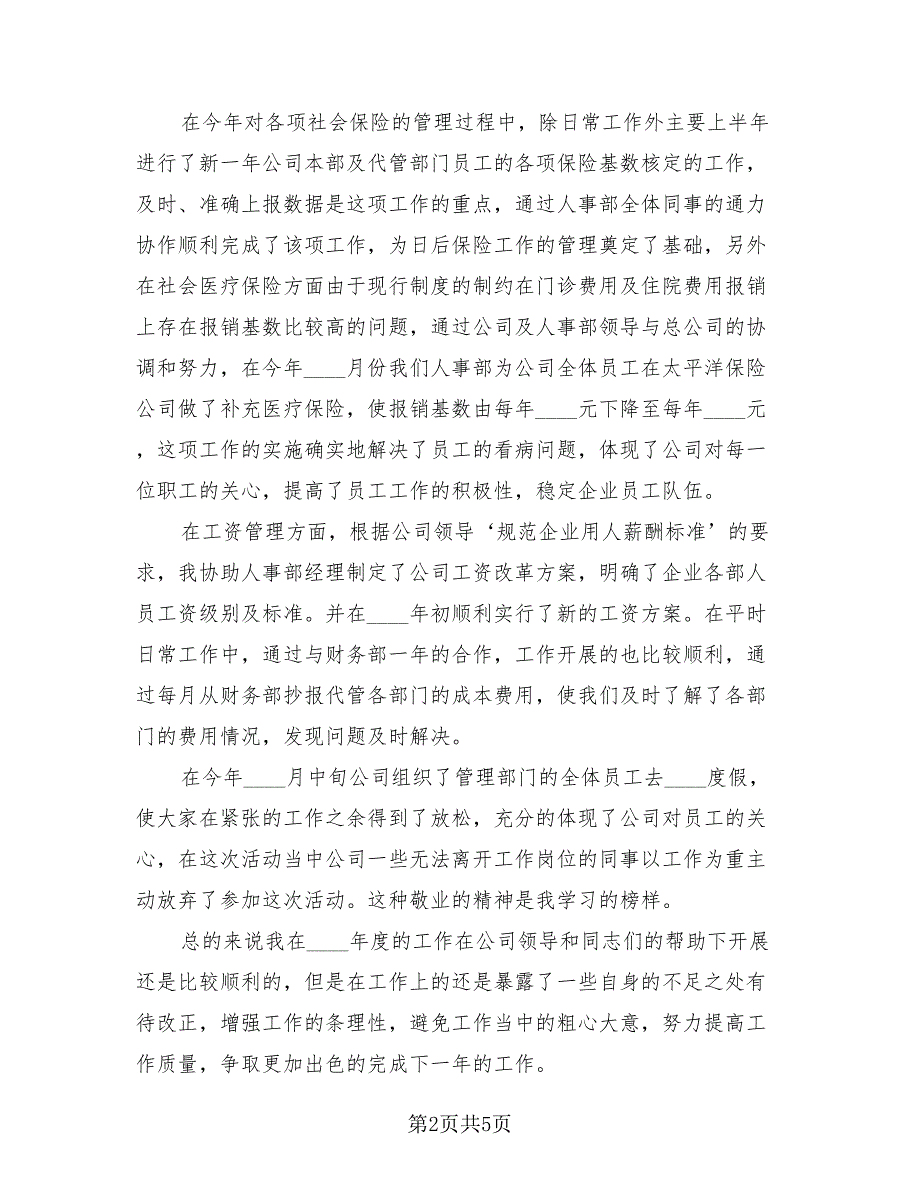 在今年对各项社会保险的管理过程中，除日常工作外主要上半年
进行了新一年公司本部及代管部门员工的各项保险基数核定的工作，
及时、准确上报数据是这项工作的重点，通过人事部全体同事的通力
协作顺利完成了该项工作，为日后保险工作的管理奠定了基础，另外
在社会医疗保险方面由于现行制度的制约在门诊费用及住院费用报销
上存在报销基数比较高的问题，通过公司及人事部领导与总公司的协
调和努力，在今年____月份我们人事部为公司全体员工在太平洋保险
公司做了补充医疗保险，使报销基数由每年____元下降至每年____元
，这项工作的实施确实地解决了员工的看病问题，体现了公司对每一
位职工的关心，提高了员工工作的积极性，稳定企业员工队伍。
在工资管理方面，根据公司领导‘规范企业用人薪酬标准’的要
求，我协助人事部经理制定了公司工资改革方案，明确了企业各部人
员工资级别及标准。并在____年初顺利实行了新的工资方案。在平时
日常工作中，通过与财务部一年的合作，工作开展的也比较顺利，通
过每月从财务部抄报代管各部门的成本费用，使我们及时了解了各部
门的费用情况，发现问题及时解决。
在今年____月中旬公司组织了管理部门的全体员工去____度假，
使大家在紧张的工作之余得到了放松，充分的体现了公司对员工的关
心，在这次活动当中公司一些无法离开工作岗位的同事以工作为重主
动放弃了参加这次活动。这种敬业的精神是我学习的榜样。
总的来说我在____年度的工作在公司领导和同志们的帮助下开展
还是比较顺利的，但是在工作上的还是暴露了一些自身的不足之处有
待改正，增强工作的条理性，避免工作当中的粗心大意，努力提高工
作质量，争取更加出色的完成下一年的工作。
第2页共5页